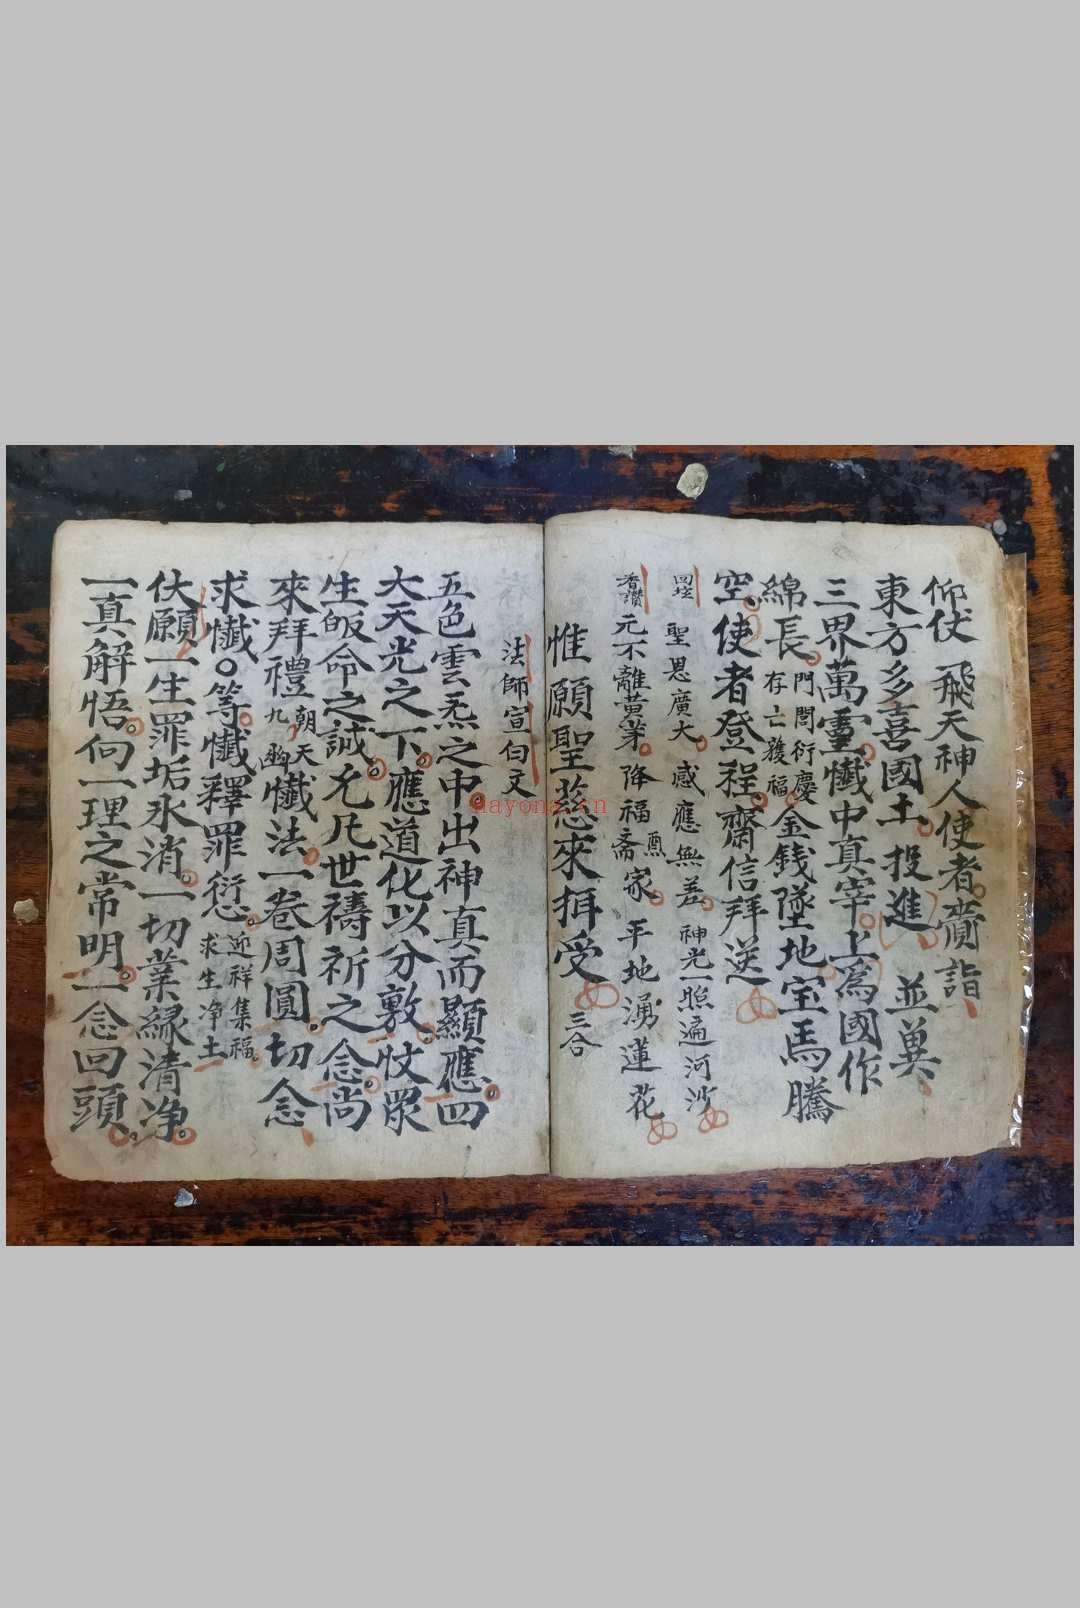 仰伏 飛天神人使者賫詣
東方多喜國土投進 並兾
三界萬靈懺中真宰上爲國作
綿長門閭衍慶存亡獲福金錢墜地宝馬騰
空使者登程齋信拜送
回坛 聖恩廣大 感應無差 神光一照遍河沙
香讚 元不離黄茅 降福斋家 平地湧蓮花
惟願聖慈來拝受 三合
法師宣白文
五色雲炁之中出神真而顯應四
大天光之下應道化以分敷忮眾
生皈命之誠允凡世禱祈之念尚
來拜禮朝天九幽懺法一卷周圓切念
求懺○等懺釋罪衍愆迎祥集福求生净土
伏願一生罪垢氷消一切業緣清净
一真解悟何一理之常明一念回頭
nayona.cn